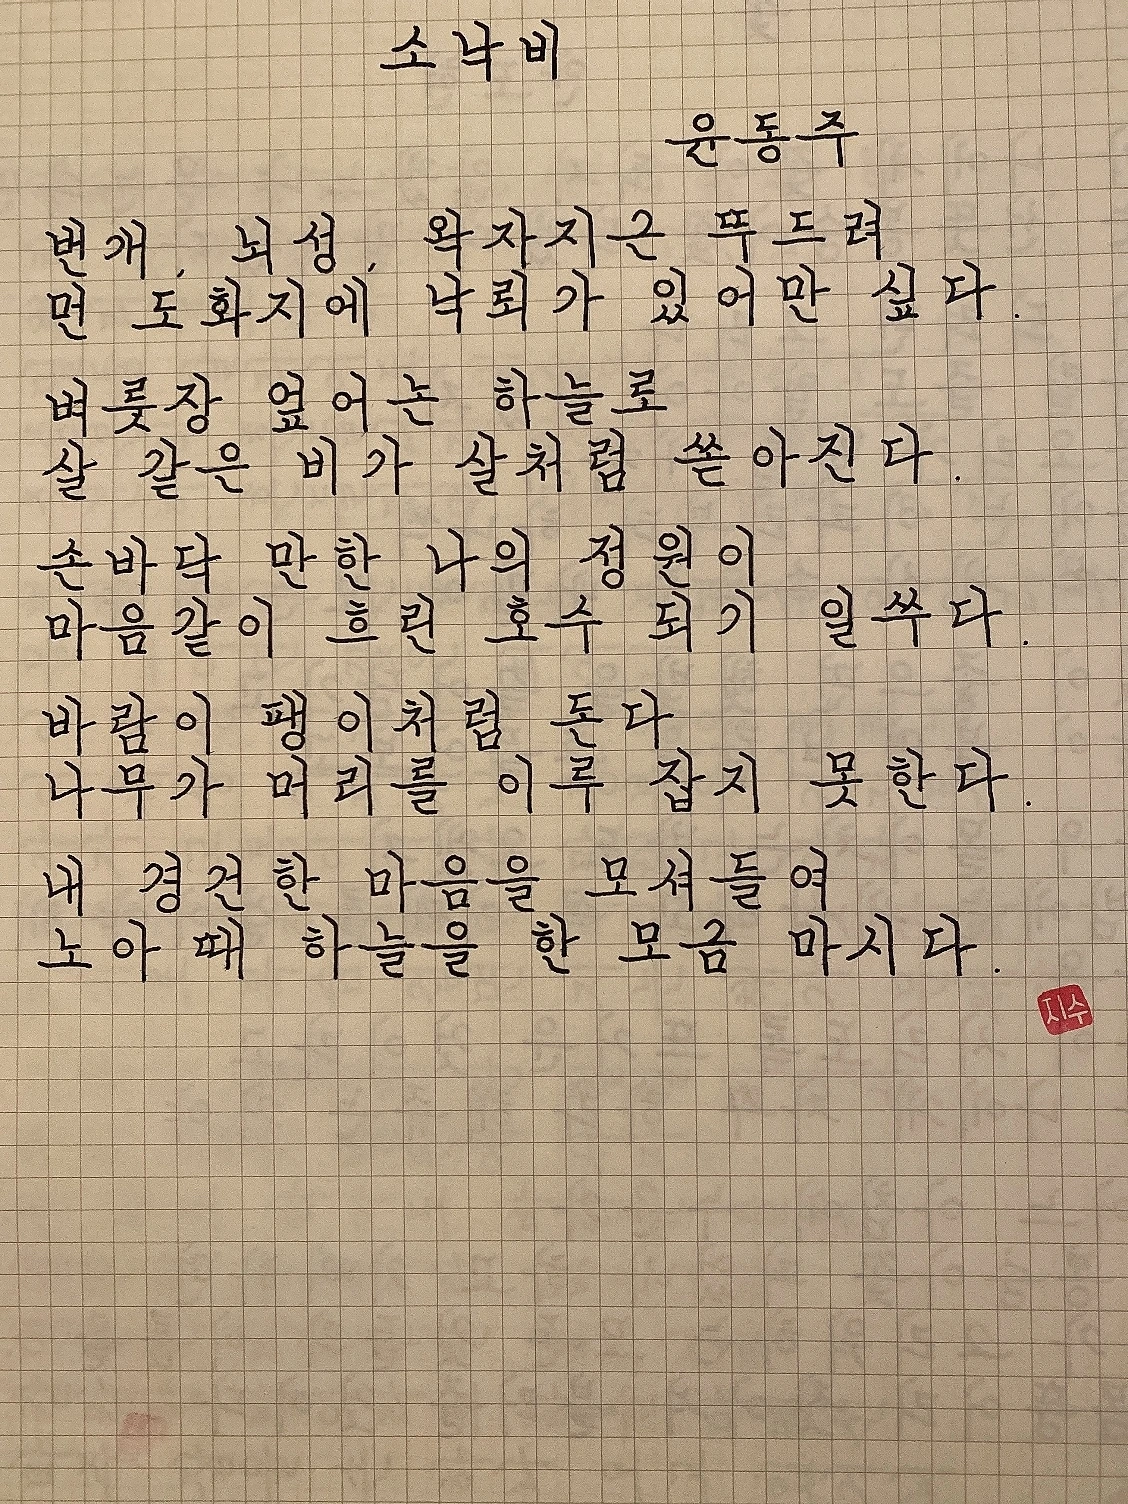 소낙비
윤동주
번개, 뇌성, 왁자지근 뚜드려
먼 도화지에 낙뢰가 있어만 싶다.
벼룻장 엎어논 하늘로
살 같은 비가 살처럼 쏟아진다.
손바닥 만한 나의 정원이
마음같이 흐린 호수 되기 일쑤다.
바람이 팽이처럼 돈다
나무가 머리를 이루 잡지 못한다.
내 경건한 마음을 모셔들여
노아 때 하늘을 한 모금 마시다.
지수